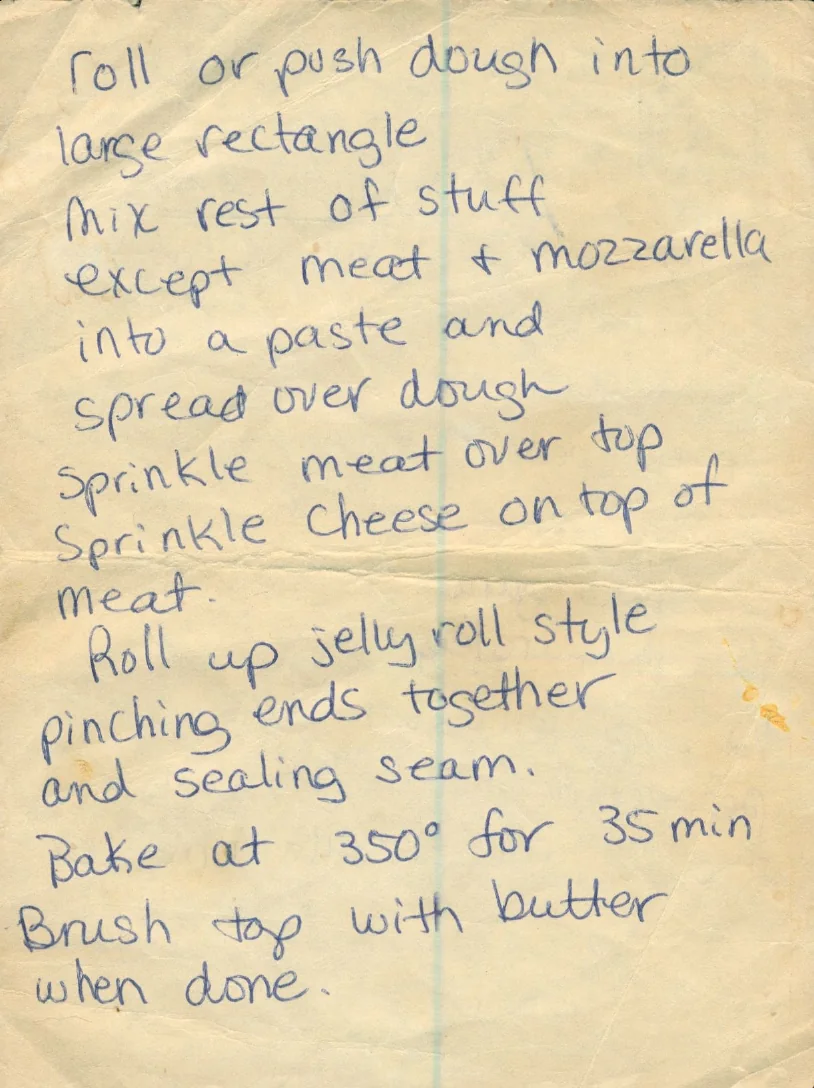 roll or push dough into
large rectangle
Mix rest of stuff
except meat + mozzarella
into a paste and
spread over dough
Sprinkle meat over top
Sprinkle cheese on top of
meat.
Roll up jelly roll style
pinching ends together
and sealing seam.
Bake at 350° for 35 min
Brush top with butter
when done.